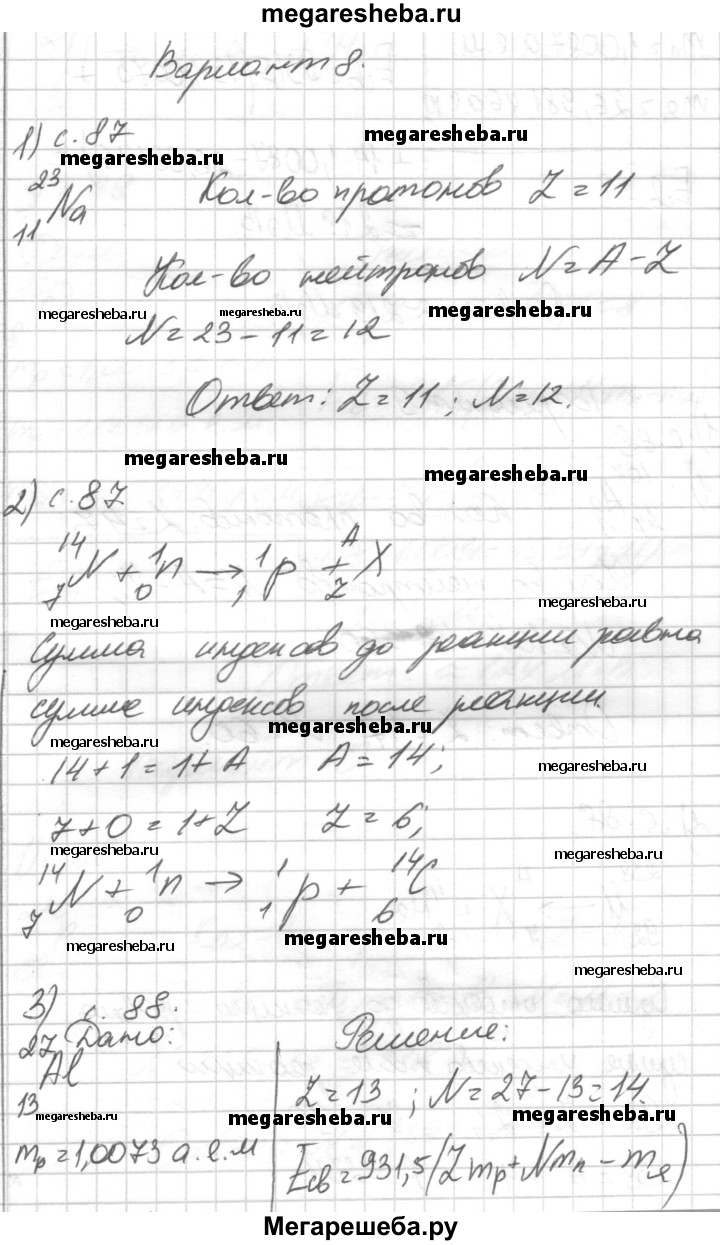 megaresheba.ru
Вариант 8.
1) с. 87
megaresheba.ru
megaresheba.ru
²³₁₁Na Кол-во протонов Z = 11
Кол-во нейтронов N = A - Z
megaresheba.ru megaresheba.ru megaresheba.ru
N = 23 - 11 = 12
Ответ: Z = 11; N = 12.
megaresheba.ru
megaresheba.ru
2) с. 87
¹⁴₇N + ¹₀n → ¹₁p + ᴬ_ZX
megaresheba.ru
megaresheba.ru
Сумма индексов до реакции равна
сумме индексов после реакции.
megaresheba.ru
megaresheba.ru
14 + 1 = 1 + A A = 14;
megaresheba.ru
7 + 0 = 1 + Z Z = 6;
megaresheba.ru
megaresheba.ru
¹⁴₇N + ¹₀n → ¹₁p + ¹⁴₆C
megaresheba.ru
megaresheba.ru
megaresheba.ru
3) с. 88.
Дано: Решение:
²⁷₁₃Al Z = 13 ; N = 27 - 13 = 14.
megaresheba.ru megaresheba.ru megaresheba.ru
mp = 1,0073 а.е.м Eсв = 931,5 (Zmp + Nmn - mя)
Мегарешеба.ру